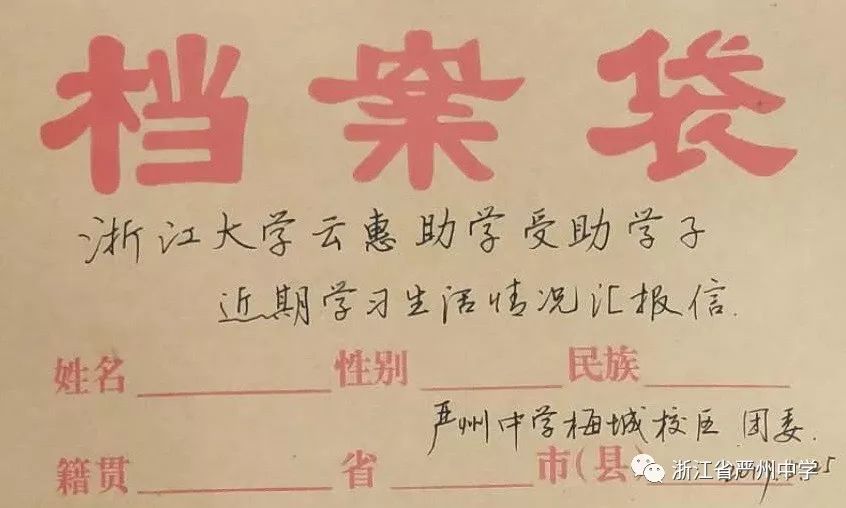 档案袋
浙江大学云惠助学受助学子
近期学习生活情况汇报信.
姓名 性别 民族
严州中学梅城校区 团委.
籍贯 省 市(县)
浙江省严州中学